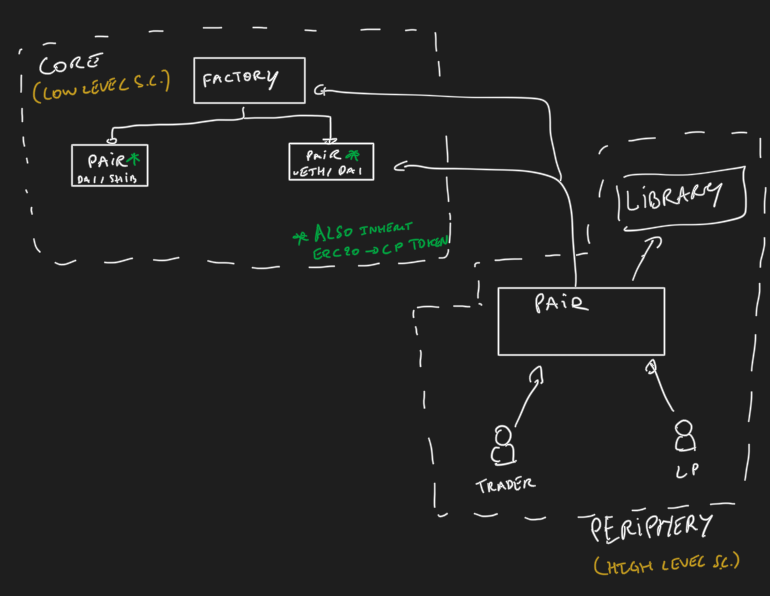 CORE
(LOW LEVEL S.C.)
FACTORY
PAIR*
DAI/SHIB
PAIR*
WETH/DAI
* ALSO INHERIT
ERC20 → LP TOKEN
LIBRARY
PAIR
TRADER
LP
PERIPHERY
(HIGH LEVEL S.C.)